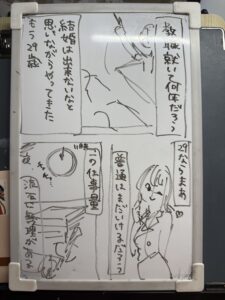 教職就いて何年だろう
結婚は出来ないなと
思いながらやってきた
もう29歳
29ならまあ
普通はまだいけるだろう
この仕事量
流石に無理がある